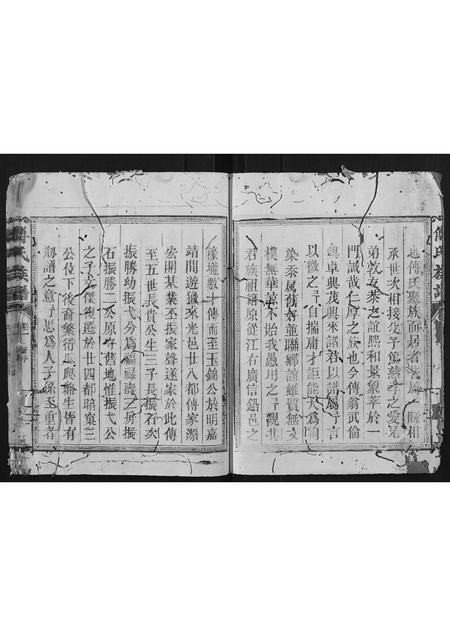 地傅氏聚族而居者
承世次相接父子篤慈孝之愛兄
弟敦友恭之誼熙和景象萃於一
門誠哉仁厚之族也今傅翁武倫
與卓興茂興來諸君以譜屬予言
以微之予自揣庸才詎能
染黍属舊好並聯鄉誼雖質無文
樸無華故不始我愚用之觀其
君族祖籍原從江右廣信鉛邑之
壠數十傳而至玉錦公於明嘉
靖間遊獵來光邑廿八都傅家瀬
宏開基業丕振家聲遂家於此傳
至五世長貴公生三子長振石次
振勝幼振弋分為福祿壽之房振
石振勝二公原守舊地惟振弋公
之子文傑徙遷於廿四都暗窠三
公位下後裔繁衍瓜瓞綿生皆有
譜之意予思為人子孫至重者
傅氏族譜
傅氏族譜